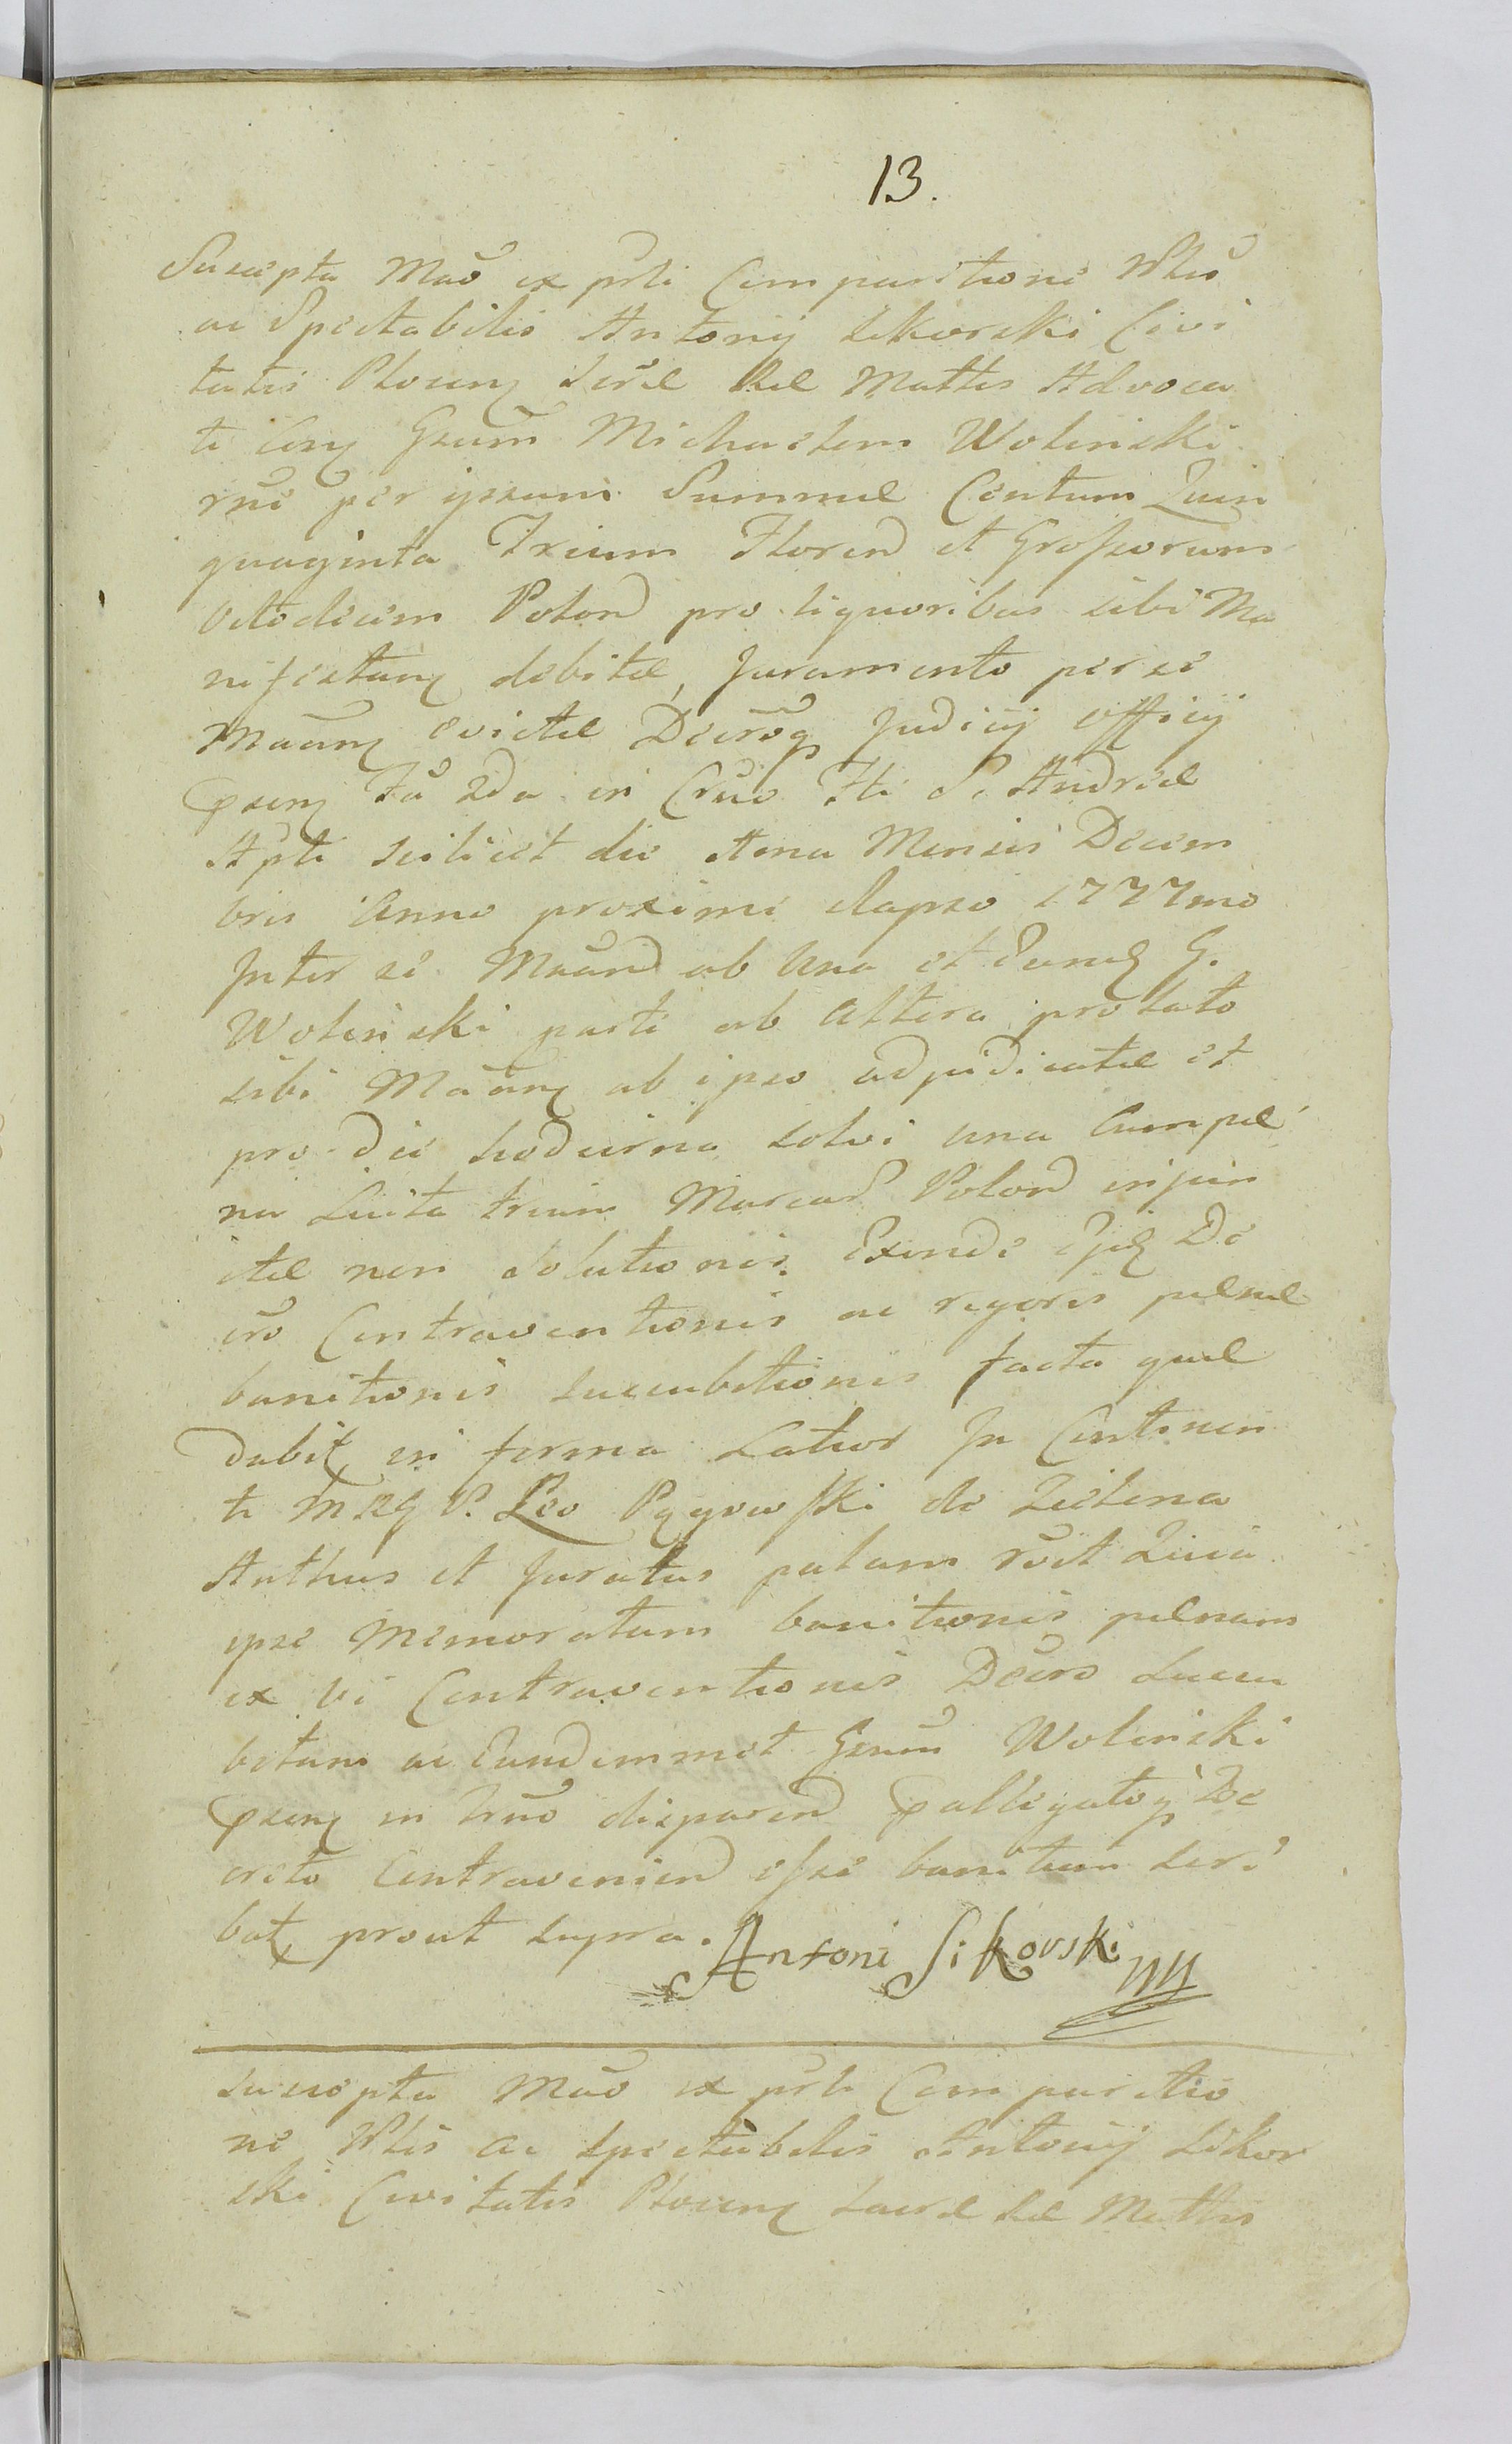 13.
Suscepta Mão ex prti Comparitione Nblis
ac Spectabilis Antonij Sikorski Civi
tatis Plocen Scræ Ræ Mattis Advoca
ti con Gsum Michaelem Wolinski
rne per ipsum Summæ Centum Quin
quaginta Trium Floren et Grossorum
Octodecim Polon pro liquoribus sibi Ma
nifestan debitæ, Juramento per se
Mãan evictæ Decrõq Judicij Officij
psen Fa 2da in Crño Fti S. Andreæ
Apli scilicet die 4tona Mensis Decem
bris Anno proxime elapso 1777mo
Inter se Mãan ab Una et Eund G.
Wolinski parte ab altera prolato
sibi Mãan ab ipso adjudicatæ et
pro die hodierna solvi una cum pæ
na Luita trium Marcar Polon injun
ctæ non Solutionis. Exinde ejus De
crõ Contraventionis ac rigoris pænæ
banitionis succubitionis facta quæ
dabit in forma Latior In Continen
ti MRG P. Leo Pągowski de Zielona
Anthus et Juratus palam rvit Quia
ipse memoratam banitionis pænam
ex vi Contraventionis Decro succu
bitam ac Eundemmet Gsum Wolinski
psen in Crño disparen palligatoq De
creto Contravenien esse banitum scri
bat prout supra. Antoni Sikorski mp
Suscepta Mão ex prti Comparitio
ne Nblis ac Spectabilis Antonij Sikor
ski Civitatis Plocen Sacræ Ræ Mattis